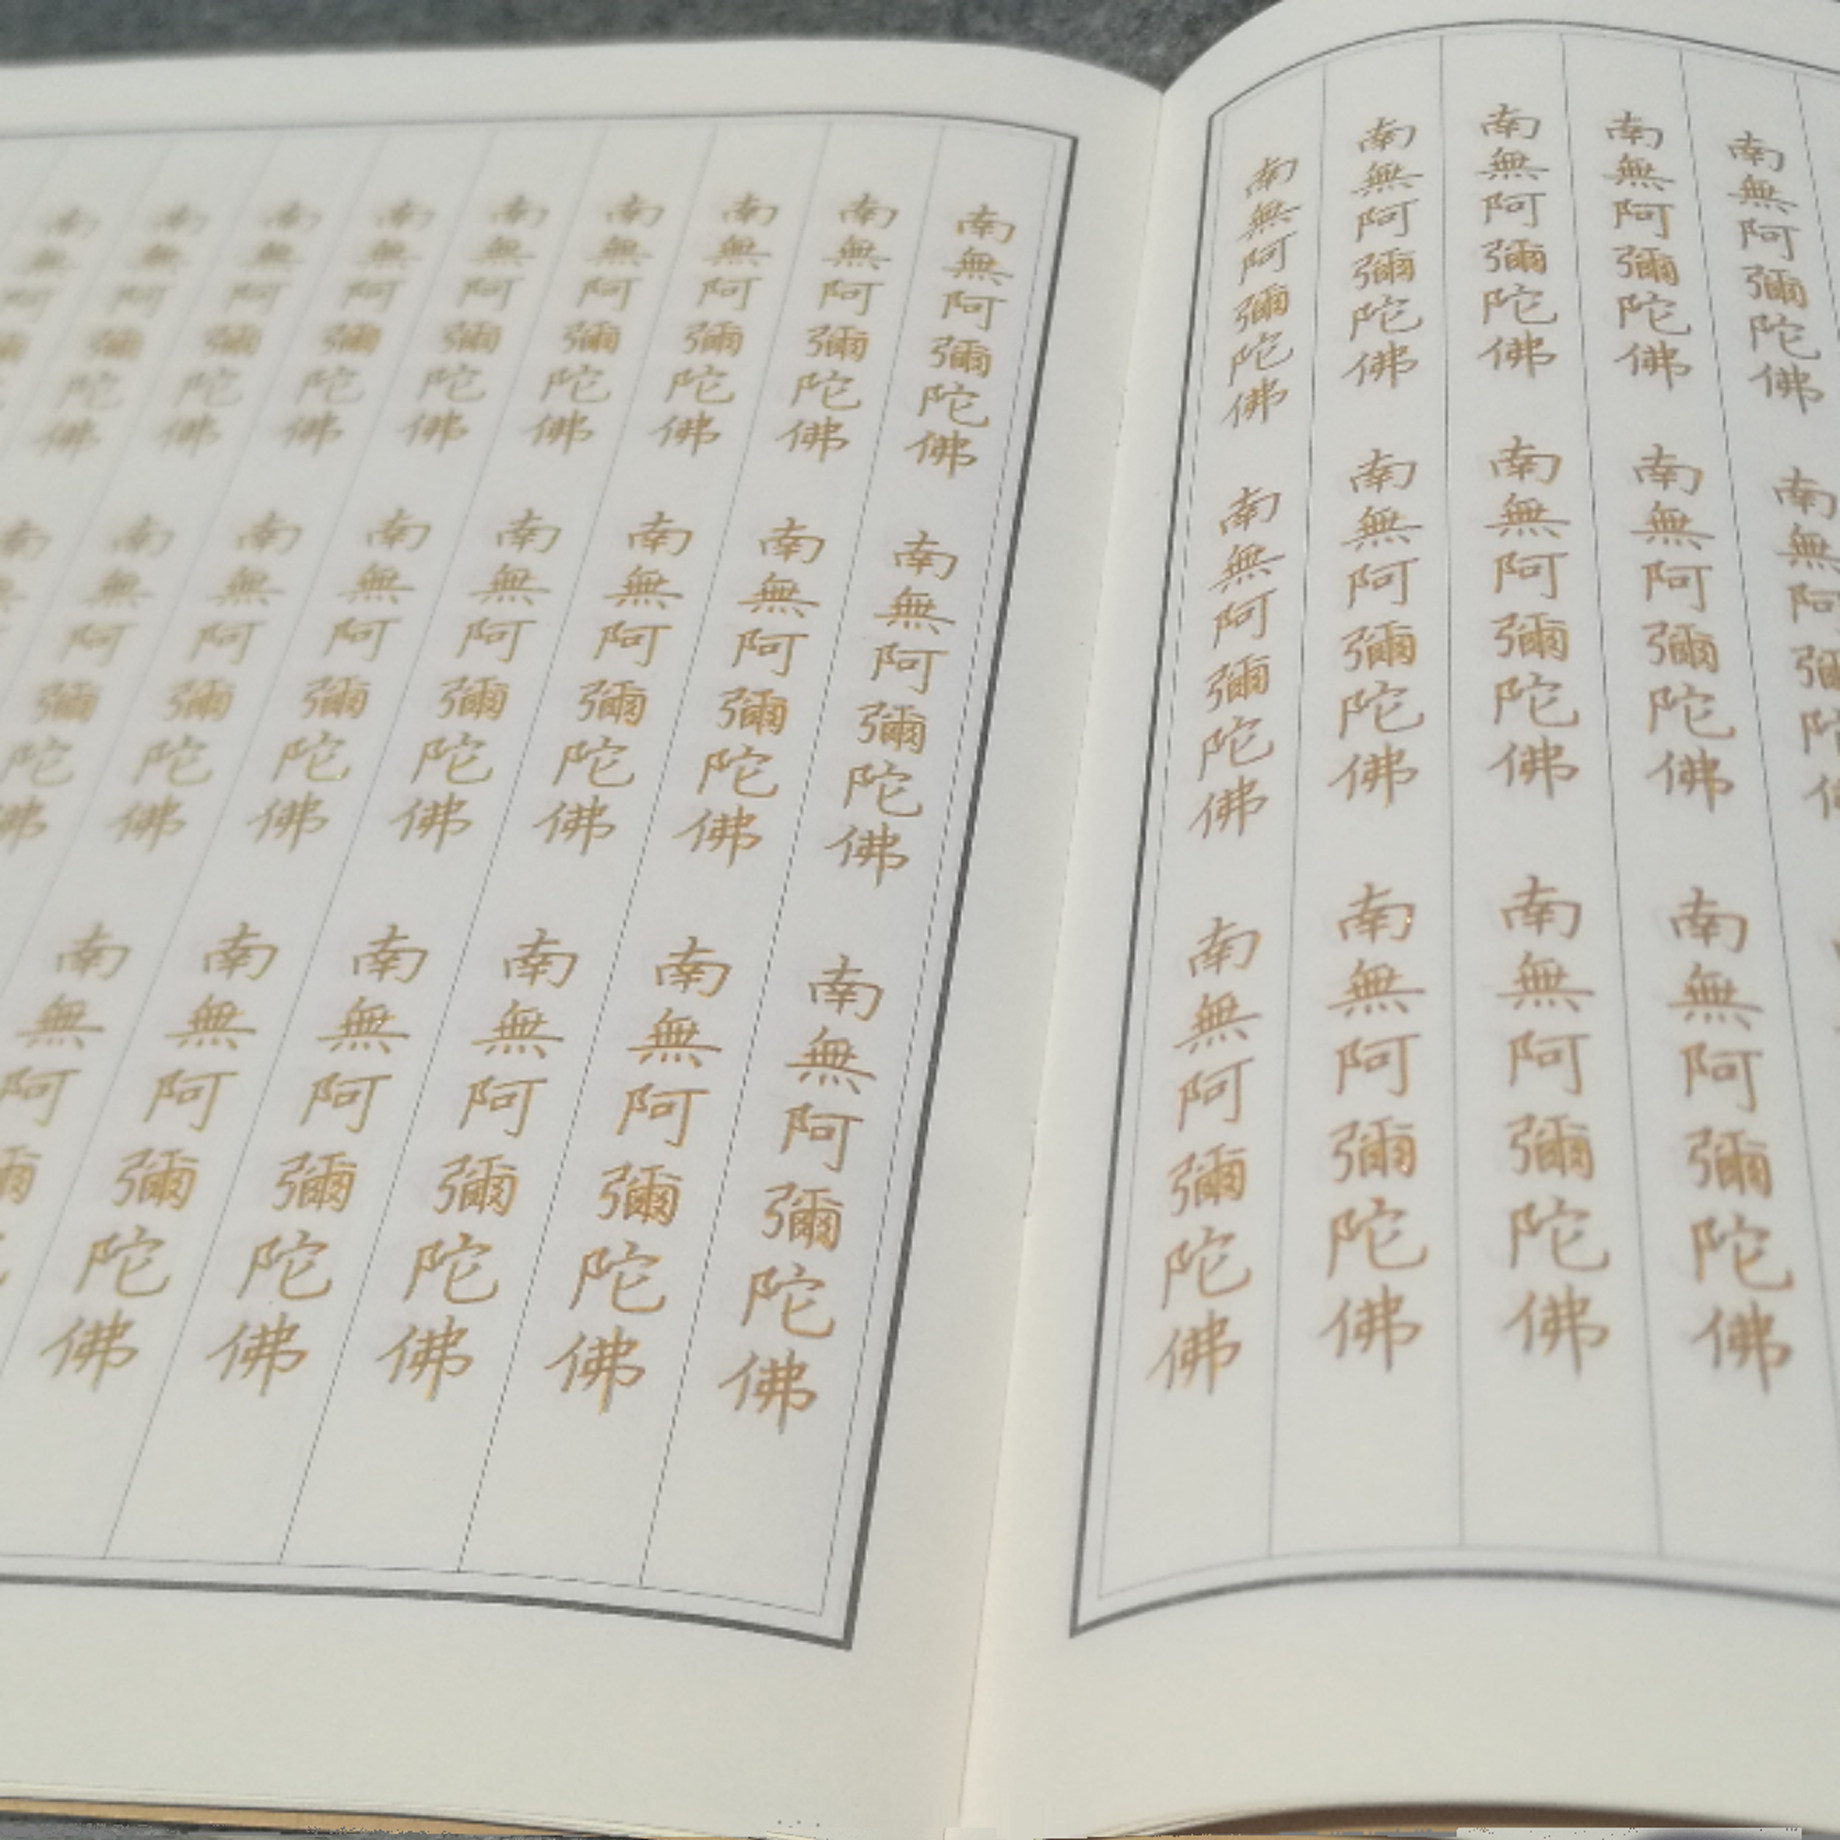 南無阿彌陀佛 南無阿彌陀佛
南無阿彌陀佛 南無阿彌陀佛 南無阿彌陀佛
南無阿彌陀佛 南無阿彌陀佛 南無阿彌陀佛
南無阿彌陀佛 南無阿彌陀佛 南無阿彌陀佛
南無阿彌陀佛 南無阿彌陀佛 南無阿彌陀佛
南無阿彌陀佛 南無阿彌陀佛 南無阿彌陀佛
南無阿彌陀佛 南無阿彌陀佛 南無阿彌陀佛
南無阿彌陀佛 南無阿彌陀佛 南無阿彌陀佛
南無阿彌陀佛 南無阿彌陀佛 南無阿彌陀佛
南無阿彌陀佛 南無阿彌陀佛 南無阿彌陀佛
南無阿彌陀佛 南無阿彌陀佛 南無阿
南無阿彌陀佛 南無阿彌陀佛
南無阿彌陀佛 南
南無阿